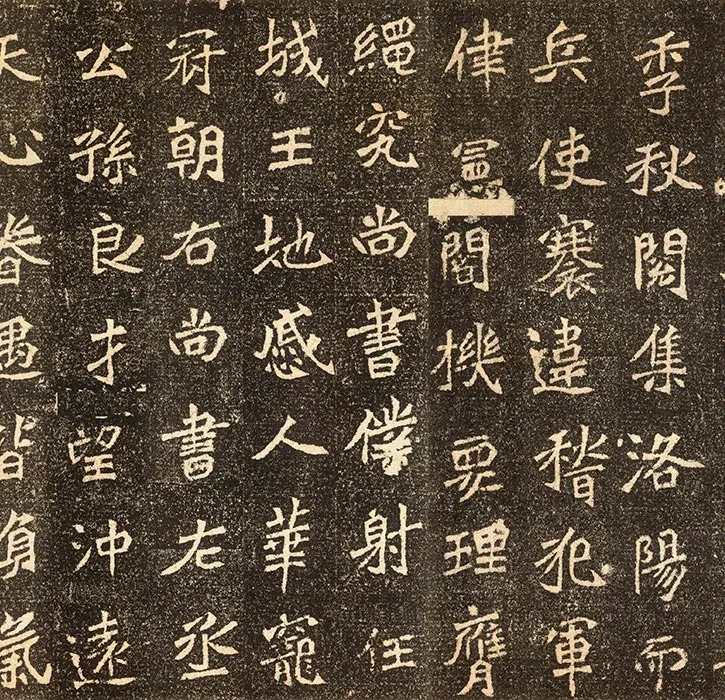 季秋閱集洛陽而
兵使褰違稽犯軍
律閻機要理膺
繩究尚書僕射任
城王地感人華寵
冠朝右尚書左丞
公孫良才望沖遠
天心眷遇皆負氣